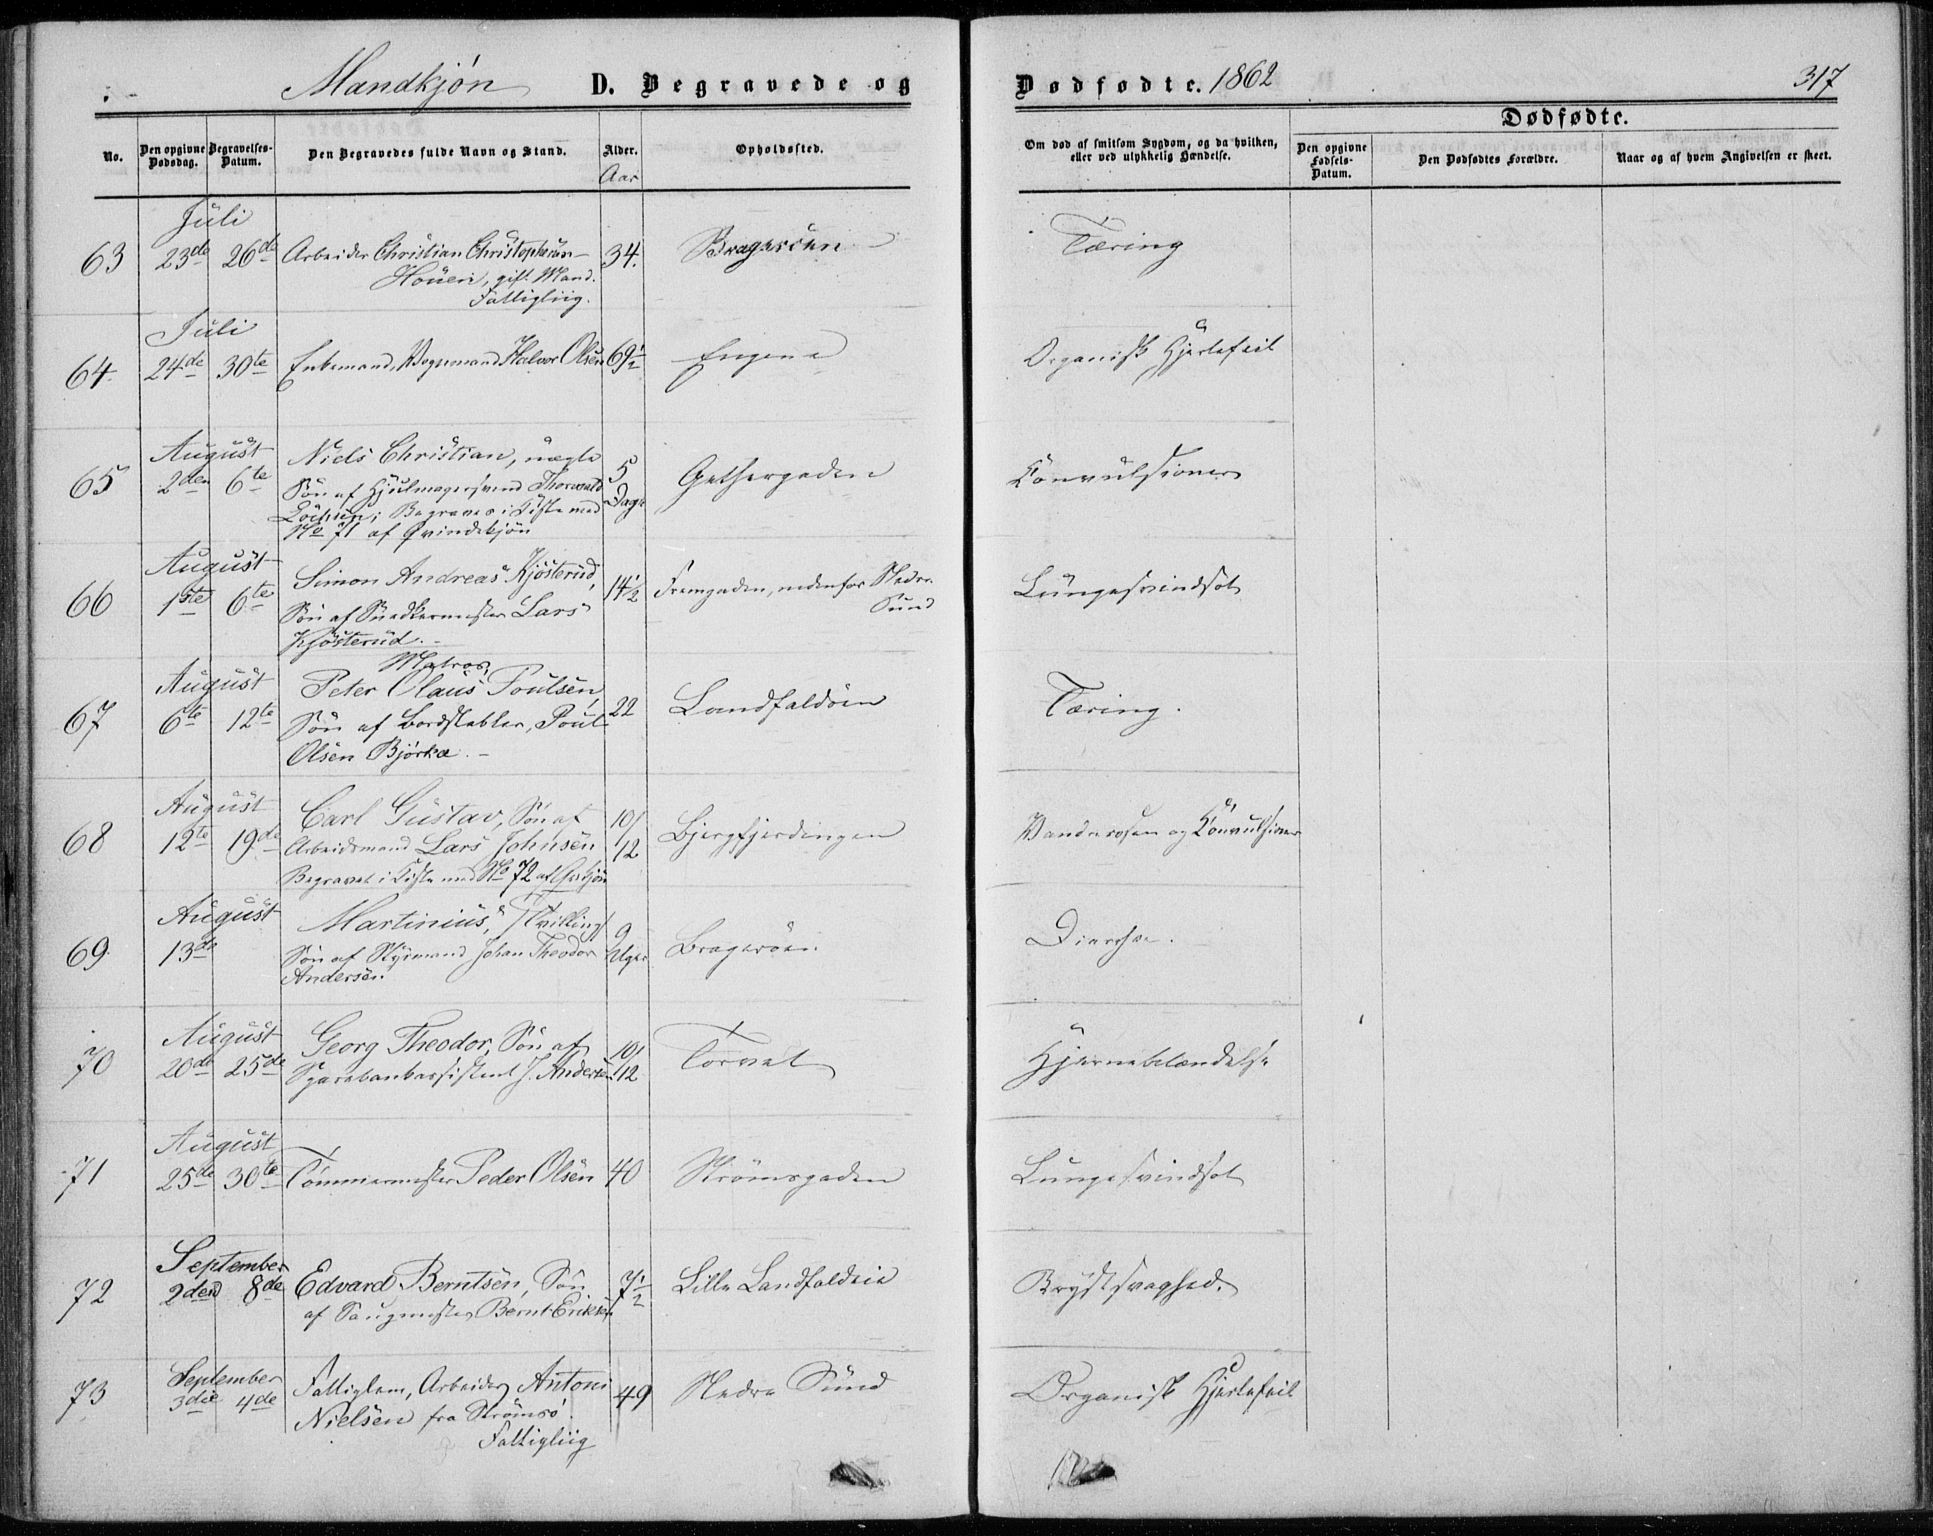 Mandkjøn D. Begravede og
Dødfødte. 1862 317
No. Den opgivne Dødsdag. Begravelses-Datum. Den Begravedes fulde Navn og Stand. Alder. Opholdssted.
Aar
Om død af smitsom Sygdom, og da hvilken, eller ved ulykkelig Hændelse.
Dødfødte.
Den opgivne Fødsels-Datum. Den Dødfødtes Forældre. Naar og af hvem Angivelsen er skeet.
Juli
63 23de 26de Arbeider Christian Christophersen 34. Bragerøen Tæring
Houen, gift Mand.
Fattigliig.
Juli
64 24de 30te Enkemand, Vognmand Halvor Olsen 69½ Engene Organisk Hjertefeil
August
65 2den 6te Niels Christian, uægte 5 Dage Gethergaden Convulsioner
Søn af Hjulmagersvend Thorvald
Begraves i Kiste med
No 71 af Qvindekjøn
August
66 1ste 6te Simon Andreas Kjøsterud, 14½ Fremgaden, nedenfor Nedre Sund Lungesvindsot
Søn af Snedkermester Lars
Kjøsterud.
Matros,
August
67 6te 12te Peter Olaus Poulsen, 22 Landfaldøen Tæring.
Søn af Bordstabler, Poul
Olsen Bjørkæ.
August
68 12te 19de Carl Gustav, Søn af 10/12 Bjergfjerdingen Vandrosen og Convulsioner
Arbeidsmand Lars Johnsen
Begravet i Kiste med No 72 af Qvkjøn
August
69 13de Martinius, Tvilling 9 Uger Bragerøen Diarrhæ.
Søn af Styrmand Johan Theodor
Andersen
August
70 20de 25de Georg Theodor, Søn af 10/12 Torvet Hjernebetændelse
Sparebankassistent J. Andersen
August
71 25de 30te Tømmermester Peder Olsen 40 Strømsgaden Lungesvindsot
September
72 2den 8de Edvard Berntsen, Søn 7½ Lille Landfaldøie Brystsvaghed.
af Saugmester Bernt Eriksen
September
73 3die 4de Fattiglem, Arbeider Antoni 49 Nedre Sund Organisk Hjertefeil
Nielsen fra Strømsø.
Fattigliig